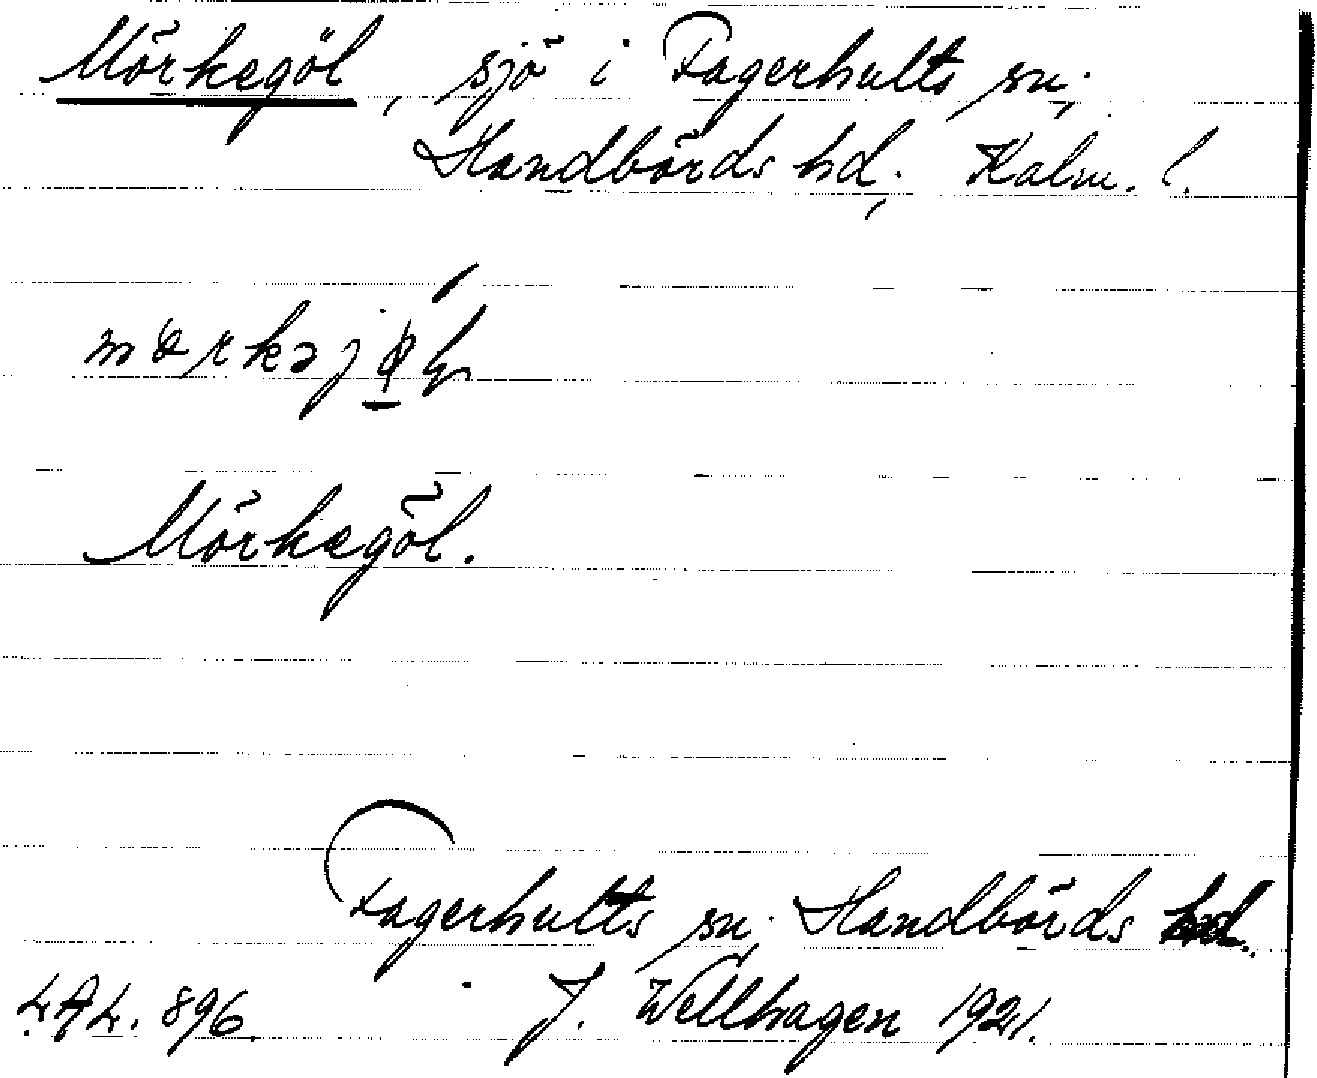 Mörkegöl, sjö i Fagerhults sn,
Handbörds hd, Kalm. l.
Mörkegöl.
Fagerhults sn, Handbörds hd.
LAL. 896. J. Wellhagen 1921.